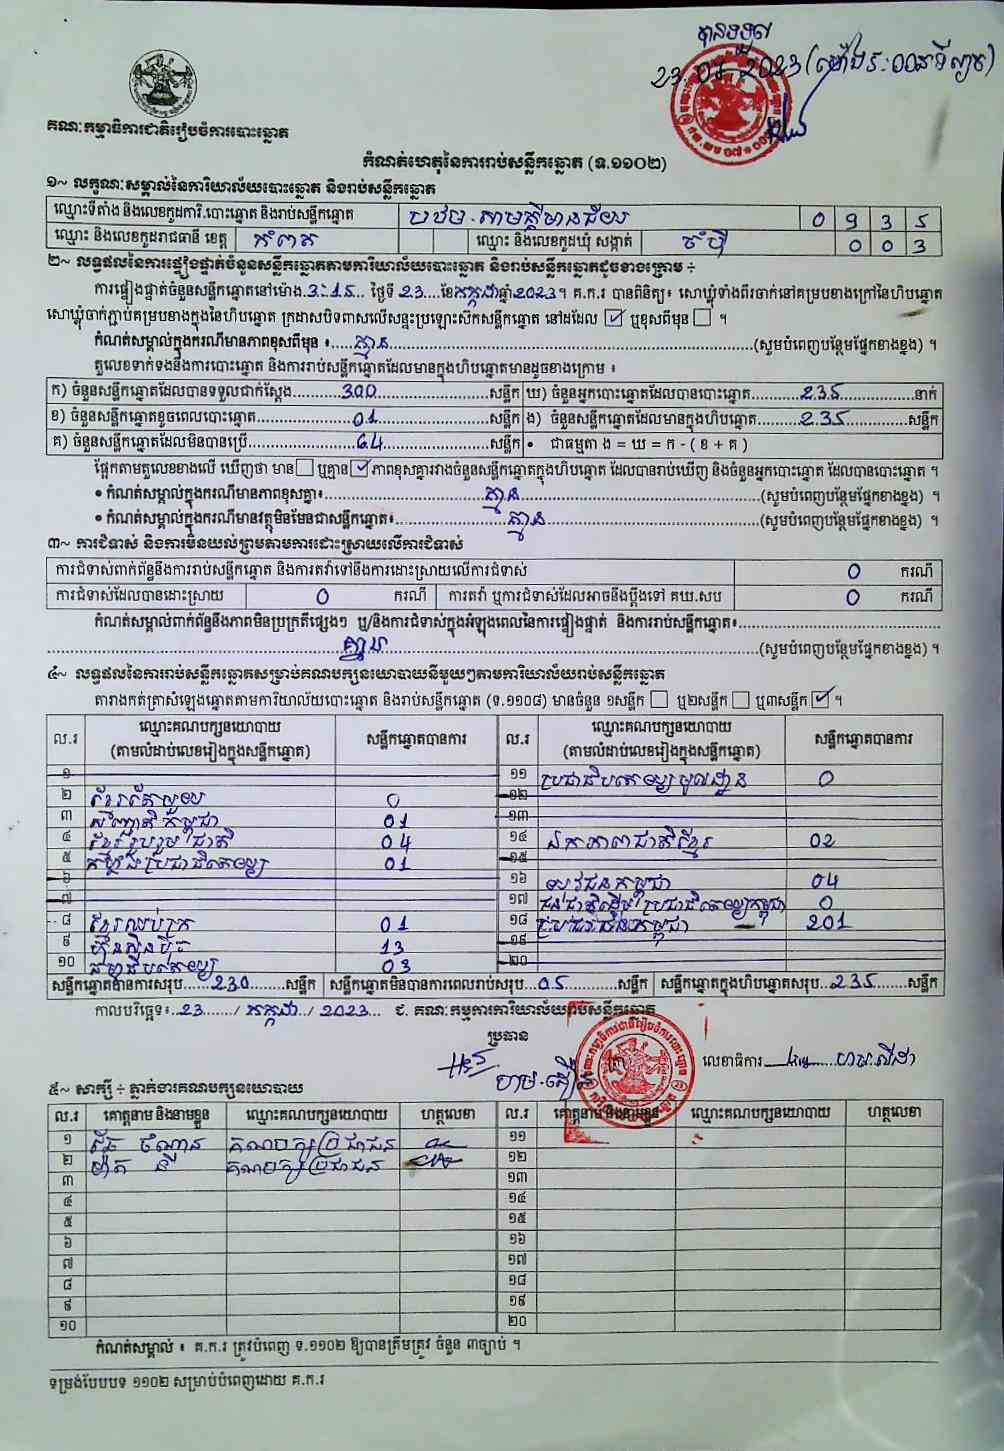 បានទទួល
23.07.2023 (ម៉ោង 5:00 នាទីល្ងាច)
គណៈកម្មាធិការជាតិរៀបចំការបោះឆ្នោត
កំណត់ហេតុនៃការរាប់សន្លឹកឆ្នោត (ទ.១១០២)
១~ លក្ខណៈសម្គាល់នៃការិយាល័យបោះឆ្នោត និងរាប់សន្លឹកឆ្នោត
ឈ្មោះទីតាំង និងលេខកូដការិ.បោះឆ្នោត និងរាប់សន្លឹកឆ្នោត បឋម.សាមគ្គីមានជ័យ 0 9 3 5
ឈ្មោះ និងលេខកូដរាជធានី ខេត្ត កំពត ឈ្មោះ និងលេខកូដឃុំ សង្កាត់ ចំប៉ី 0 0 3
២~ លទ្ធផលនៃការផ្ទៀងផ្ទាត់ចំនួនសន្លឹកឆ្នោតតាមការិយាល័យបោះឆ្នោត និងរាប់សន្លឹកឆ្នោតដូចខាងក្រោម ÷
ការផ្ទៀងផ្ទាត់ចំនួនសន្លឹកឆ្នោតនៅម៉ោង 3:15 ថ្ងៃទី 23 ខែ កក្កដា ឆ្នាំ 2023។ គ.ក.រ បានពិនិត្យ៖ សោឃ្លុំទាំងពីរចាក់នៅគម្របខាងក្រៅនៃហិបឆ្នោត
សោឃ្លុំចាក់ភ្ជាប់គម្របខាងក្នុងនៃហិបឆ្នោត ក្រដាសបិទពាសលើសន្ទះប្រឡោះស៊ីកសន្លឹកឆ្នោត នៅដដែល ☑ ឬខុសពីមុន ☐ ។
កំណត់សម្គាល់ក្នុងករណីមានភាពខុសពីមុន ៖ គ្មាន (សូមបំពេញបន្ថែមផ្នែកខាងខ្នង) ។
តួលេខទាក់ទងនឹងការបោះឆ្នោត និងការរាប់សន្លឹកឆ្នោតដែលមានក្នុងហិបឆ្នោតមានដូចខាងក្រោម ៖
ក) ចំនួនសន្លឹកឆ្នោតដែលបានទទួលជាក់ស្ដែង 300 សន្លឹក ឃ) ចំនួនអ្នកបោះឆ្នោតដែលបានបោះឆ្នោត 235 នាក់
ខ) ចំនួនសន្លឹកឆ្នោតខូចពេលបោះឆ្នោត 01 សន្លឹក ង) ចំនួនសន្លឹកឆ្នោតដែលមានក្នុងហិបឆ្នោត 235 សន្លឹក
គ) ចំនួនសន្លឹកឆ្នោតដែលមិនបានប្រើ 64 សន្លឹក • ជាធម្មតា ង = ឃ = ក - ( ខ + គ )
ផ្អែកតាមតួលេខខាងលើ ឃើញថា មាន ☐ ឬគ្មាន ☑ ភាពខុសគ្នារវាងចំនួនសន្លឹកឆ្នោតក្នុងហិបឆ្នោត ដែលបានរាប់ឃើញ និងចំនួនអ្នកបោះឆ្នោត ដែលបានបោះឆ្នោត ។
• កំណត់សម្គាល់ក្នុងករណីមានភាពខុសគ្នា៖ គ្មាន (សូមបំពេញបន្ថែមផ្នែកខាងខ្នង) ។
• កំណត់សម្គាល់ក្នុងករណីមានវត្ថុមិនមែនជាសន្លឹកឆ្នោត៖ គ្មាន (សូមបំពេញបន្ថែមផ្នែកខាងខ្នង) ។
៣~ ការជំទាស់ និងការមិនយល់ព្រមតាមការដោះស្រាយលើការជំទាស់
ការជំទាស់ពាក់ព័ន្ធនឹងការរាប់សន្លឹកឆ្នោត និងការតវ៉ាទៅនឹងការដោះស្រាយលើការជំទាស់ 0 ករណី
ការជំទាស់ដែលបានដោះស្រាយ 0 ករណី ការតវ៉ា ឬការជំទាស់ដែលអាចនឹងប្ដឹងទៅ គឃ.សប 0 ករណី
កំណត់សម្គាល់ពាក់ព័ន្ធនឹងភាពមិនប្រក្រតីផ្សេងៗ ឬ/និងការជំទាស់ក្នុងអំឡុងពេលនៃការផ្ទៀងផ្ទាត់ និងការរាប់សន្លឹកឆ្នោត៖
គ្មាន (សូមបំពេញបន្ថែមផ្នែកខាងខ្នង) ។
៤~ លទ្ធផលនៃការរាប់សន្លឹកឆ្នោតសម្រាប់គណបក្សនយោបាយនីមួយៗតាមការិយាល័យរាប់សន្លឹកឆ្នោត
តារាងកត់ត្រាសំឡេងឆ្នោតតាមការិយាល័យបោះឆ្នោត និងរាប់សន្លឹកឆ្នោត (ទ.១១០៨) មានចំនួន ១សន្លឹក ☐ ឬ២សន្លឹក ☐ ឬ៣សន្លឹក ☑ ។
ល.រ ឈ្មោះគណបក្សនយោបាយ (តាមលំដាប់លេខរៀងក្នុងសន្លឹកឆ្នោត) សន្លឹកឆ្នោតបានការ ល.រ ឈ្មោះគណបក្សនយោបាយ (តាមលំដាប់លេខរៀងក្នុងសន្លឹកឆ្នោត) សន្លឹកឆ្នោតបានការ
១ ១១ ប្រជាធិបតេយ្យមូលដ្ឋាន 0
២ ខ្មែរតែមួយ 0 ១២
៣ សញ្ជាតិកម្ពុជា 01 ១៣
៤ ខ្មែររួបរួមជាតិ 04 ១៤ ឯកភាពជាតិខ្មែរ 02
៥ កម្លាំងប្រជាធិបតេយ្យ 01 ១៥
៦ ១៦ យុវជនកម្ពុជា 04
៧ ១៧ ជនជាតិដើមប្រជាធិបតេយ្យកម្ពុជា 0
៨ ខ្មែរឈប់ក្រ 01 ១៨ ប្រជាជនកម្ពុជា 201
៩ ហ៊្វុនស៊ិនប៉ិច 13 ១៩
១០ ធម្មាធិបតេយ្យ 03 ២០
សន្លឹកឆ្នោតបានការសរុប 230 សន្លឹក សន្លឹកឆ្នោតមិនបានការពេលរាប់សរុប 05 សន្លឹក សន្លឹកឆ្នោតក្នុងហិបឆ្នោតសរុប 235 សន្លឹក
កាលបរិច្ឆេទ៖ 23 / កក្កដា / 2023 ជ. គណៈកម្មការការិយាល័យរាប់សន្លឹកឆ្នោត
ប្រធាន
លេខាធិការ
៥~ សាក្សី ÷ ភ្នាក់ងារគណបក្សនយោបាយ
ល.រ គោត្តនាម និងនាមខ្លួន ឈ្មោះគណបក្សនយោបាយ ហត្ថលេខា ល.រ គោត្តនាម និងនាមខ្លួន ឈ្មោះគណបក្សនយោបាយ ហត្ថលេខា
១ ចំណាន គណបក្សប្រជាជន ១១
២ គណបក្សប្រជាជន ១២
៣ ១៣
៤ ១៤
៥ ១៥
៦ ១៦
៧ ១៧
៨ ១៨
៩ ១៩
១០ ២០
កំណត់សម្គាល់ ៖ គ.ក.រ ត្រូវបំពេញ ទ.១១០២ ឱ្យបានត្រឹមត្រូវ ចំនួន ៣ច្បាប់ ។
ទម្រង់បែបបទ ១១០២ សម្រាប់បំពេញដោយ គ.ក.រ